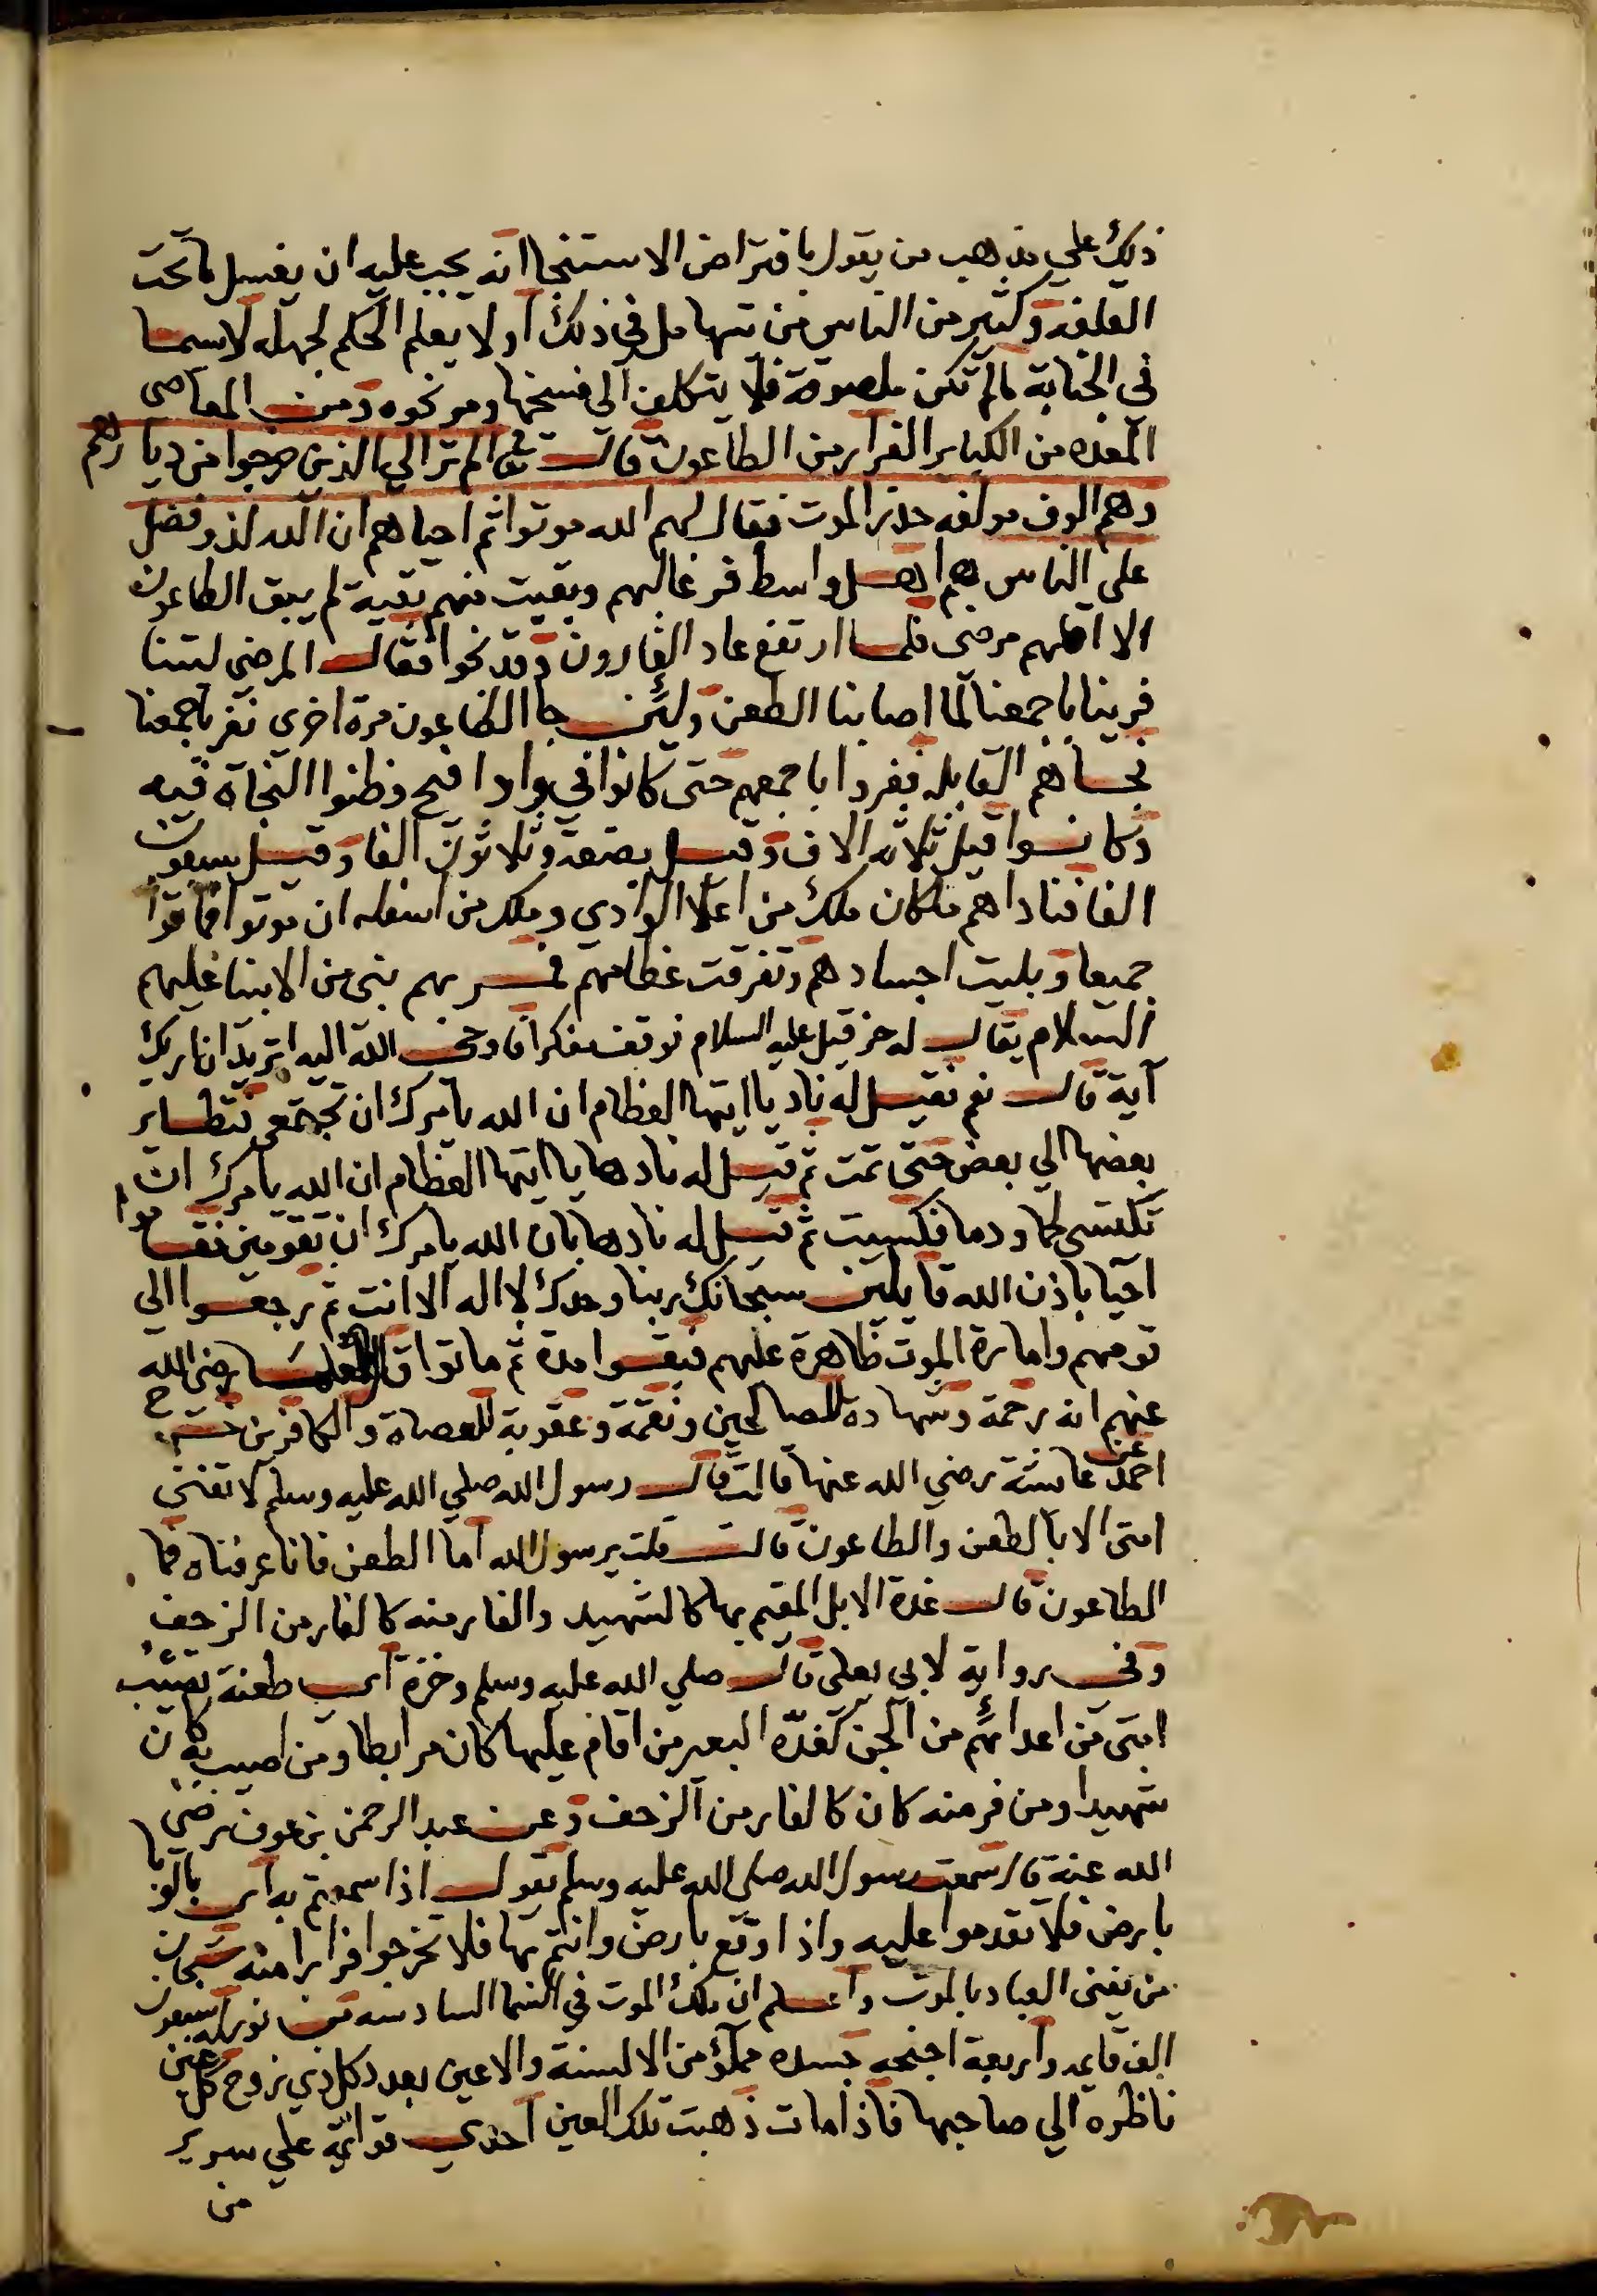 ذلك علي مذهب من يقول بافتراض الاستنجا انه يجب عليه ان يغسل ما تحت
القلفة وكثير من الناس من يتساهل في ذلك او لا يعلم الحكم لجهله لا سيما
في الجنابة ما لم تكن ملصوقة فلا يتكلف الي فسخها ومر نحوه ومن المعاصي
المعده من الكباير الفرار من الطاعون قال تعا الم تر الي الذين خرجوا من ديارهم
وهم الوف مولفه حذر الموت فقال لهم الله موتوا ثم احياهم ان الله لذو فضل
علي الناس هم اهل واسط فر غالبهم وبقيت منهم بقية لم يبق الطاعون
الا اقلهم مرضي فلما ارتفع عاد الفارون وقد نجوا فقال المرضي ليتنا
فرينا باجمعنا لما اصابنا الطعن ولئن جا الطاعون مرة اخري نفر باجمعنا
فجاهم القابله ففروا باجمعهم حتي كانوا في واد افيح وظنوا النجاة فيه
وكانوا قيل ثلاثة الاف وقيل بضعة وثلاثون الفا وقيل سبعون
الفا فناداهم ملكان ملك من اعلا الوادي وملك من اسفله ان موتوا فماتوا
جميعا وبليت اجسادهم وتفرقت عظامهم فمر بهم نبي من الانبيا عليهم
السلام يقال له حزقيل عليه السلام فوقف مفكرا فاوحي الله اليه اتريد ان اريك
آية قال نعم فقيل له ناد يا ايتها العظام ان الله يامرك ان تجتمعي فتطاير
بعضها الي بعض حتي تمت ثم قيل له نادها يا ايتها العظام ان الله يامرك ان
تكتسي لحما ودما فكسيت ثم قيل له نادها بان الله يامرك ان تقومين فقاموا
احيا باذن الله قايلين سبحانك ربنا وحدك لا اله الا انت ثم رجعوا الي
قومهم وامارة الموت ظاهرة عليهم فبقوا مدة ثم ماتوا قال العلما رضي الله
عنهم انه رحمة وشهادة للصالحين ونقمة وعقوبة للعصاة والكافرين خرج
احمد عن عائشة رضي الله عنها قالت قال رسول الله صلي الله عليه وسلم لا تفني
امتي الا بالطعن والطاعون قالت قلت يرسول الله اما الطعن فانا عرفناه فما
الطاعون قال غدة الابل المقيم بها كالشهيد والفار منه كالفار من الزحف
وفي رواية لابي يعلي قال صلي الله عليه وسلم وخزة اي طعنة تصيب
امتي من اعدائهم من الجن كغدة البعير من اقام عليها كان مرابطا ومن اصيب به كان
شهيدا ومن فر منه كان كالفار من الزحف وعن عبد الرحمن بن عوف رضي
الله عنه قال سمعت رسول الله صلي الله عليه وسلم يقول اذا سمعتم به اي بالوبا
بارض فلا تقدموا عليه واذا وقع بارض وانتم بها فلا تخرجوا فرارا منه سبحان
من يفني العباد بالموت واعلم ان ملك الموت في السما السادسه من نور له سبعون
الف قايمه واربعة اجنحه جسده مملؤ من الالسنة والاعين بعدد كل ذي روح كل عين
ناظره الي صاحبها فاذا مات ذهبت تلك العين احدي قوائمه علي سرير
من